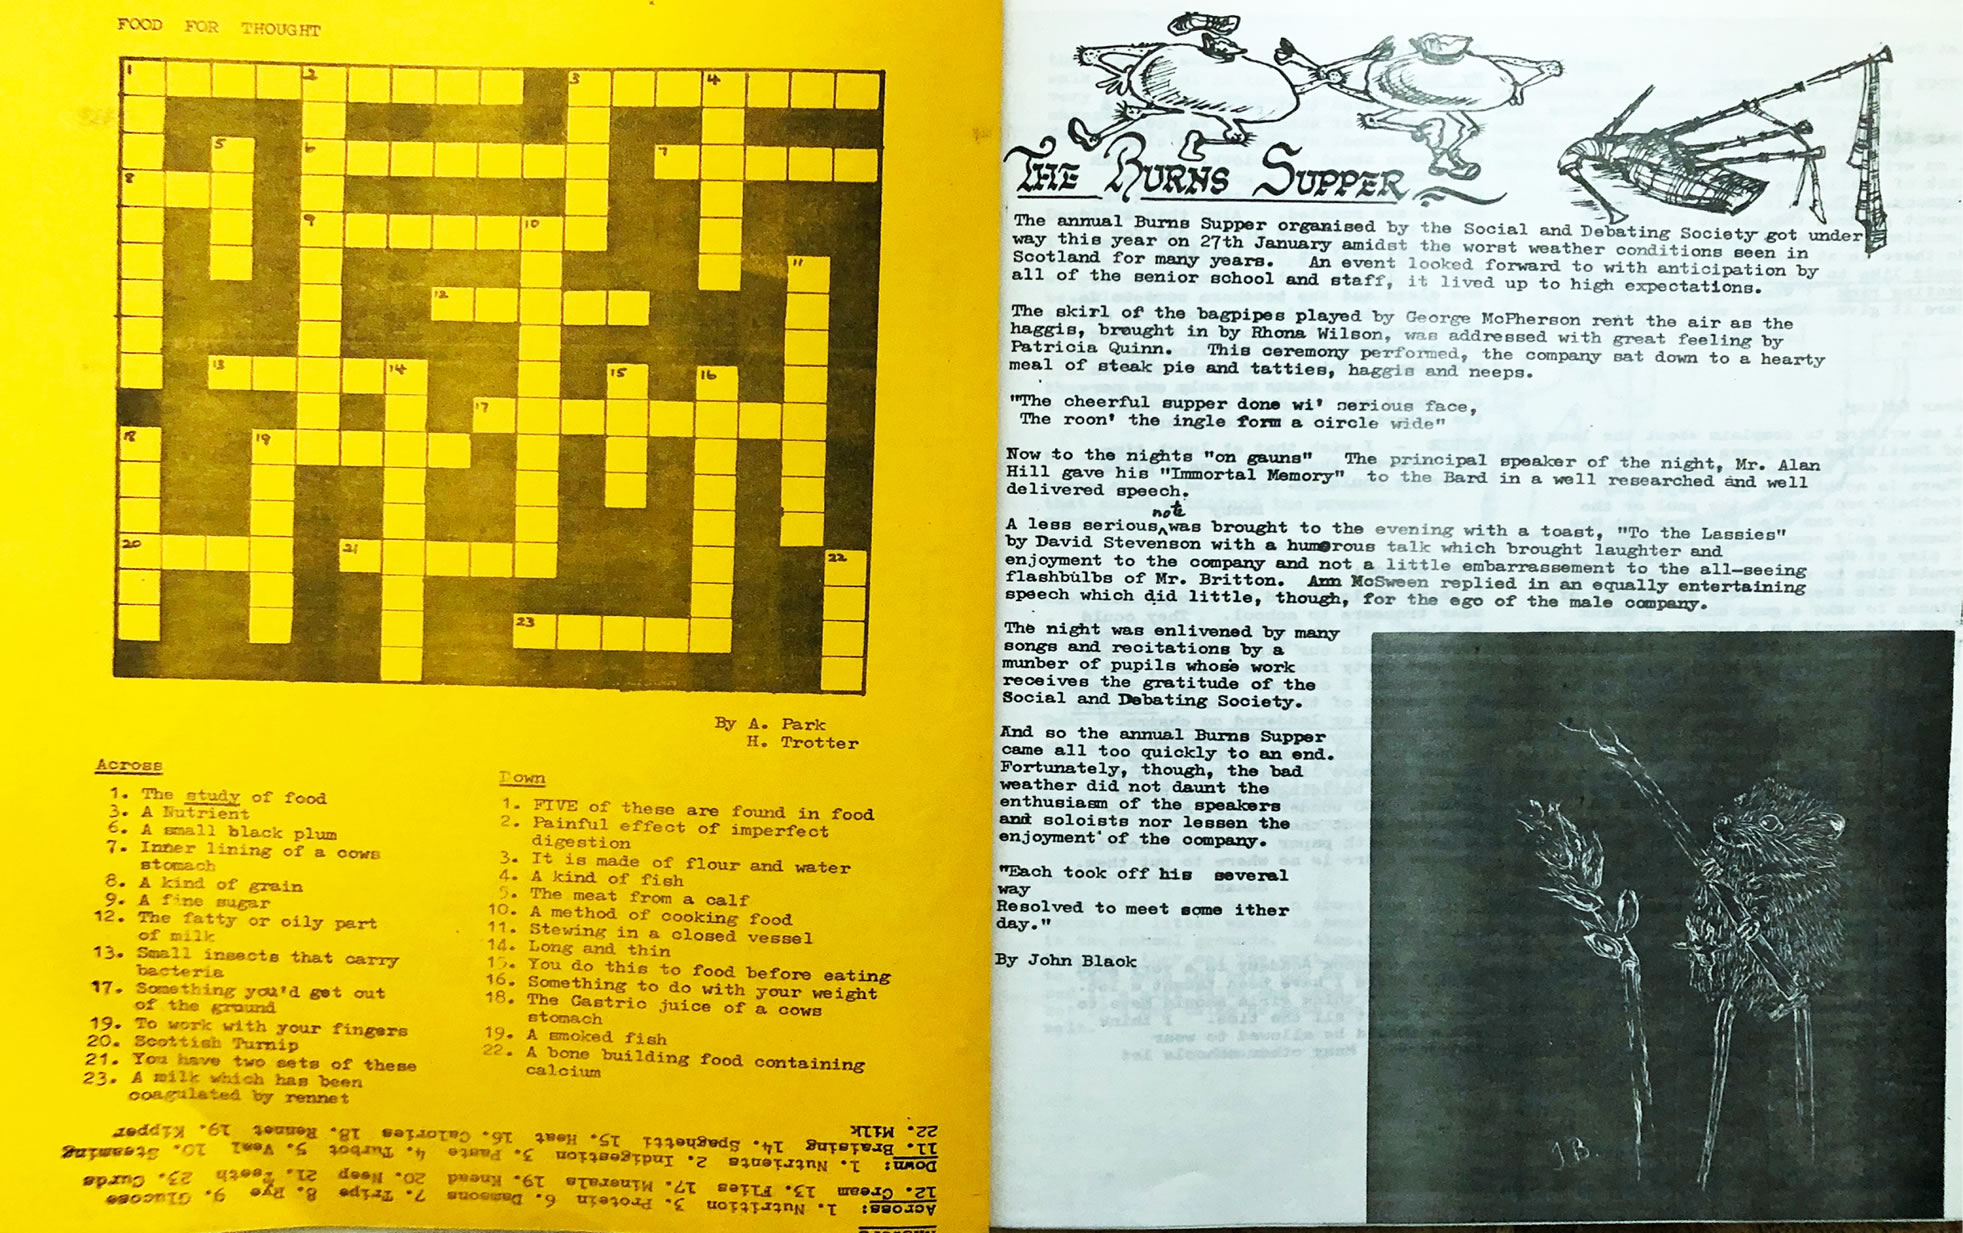 FOOD FOR THOUGHT
1 2 3 4
5 6 7
8
9 10
11
12
13 14 15 16
17
18 19
20 21 22
23
By A. Park
H. Trotter
Across
1. The study of food
3. A Nutrient
6. A small black plum
7. Inner lining of a cows
stomach
8. A kind of grain
9. A fine sugar
12. The fatty or oily part
of milk
13. Small insects that carry
bacteria
17. Something you'd get out
of the ground
19. To work with your fingers
20. Scottish Turnip
21. You have two sets of these
23. A milk which has been
coagulated by rennet
Down
1. FIVE of these are found in food
2. Painful effect of imperfect
digestion
3. It is made of flour and water
4. A kind of fish
5. The meat from a calf
10. A method of cooking food
11. Stewing in a closed vessel
14. Long and thin
15. You do this to food before eating
16. Something to do with your weight
18. The Gastric juice of a cows
stomach
19. A smoked fish
22. A bone building food containing
calcium
Across: 1. Nutrition 3. Protein 6. Damsons 7. Tripe 8. Rye 9. Glucose
12. Cream 13. Flies 17. Minerals 19. Knead 20. Neep 21. Teeth 23. Curds
Down: 1. Nutrients 2. Indigestion 3. Paste 4. Turbot 5. Veal 10. Steaming
11. Braising 14. Spaghetti 15. Heat 16. Calories 18. Rennet 19. Kipper
22. Milk
THE BURNS SUPPER
The annual Burns Supper organised by the Social and Debating Society got under
way this year on 27th January amidst the worst weather conditions seen in
Scotland for many years. An event looked forward to with anticipation by
all of the senior school and staff, it lived up to high expectations.
The skirl of the bagpipes played by George McPherson rent the air as the
haggis, brought in by Rhona Wilson, was addressed with great feeling by
Patricia Quinn. This ceremony performed, the company sat down to a hearty
meal of steak pie and tatties, haggis and neeps.
"The cheerful supper done wi' serious face,
The roon' the ingle form a circle wide"
Now to the nights "on gauns" The principal speaker of the night, Mr. Alan
Hill gave his "Immortal Memory" to the Bard in a well researched and well
delivered speech.
note
A less serious was brought to the evening with a toast, "To the Lassies"
by David Stevenson with a humorous talk which brought laughter and
enjoyment to the company and not a little embarrassement to the all-seeing
flashbulbs of Mr. Britton. Ann McSween replied in an equally entertaining
speech which did little, though, for the ego of the male company.
The night was enlivened by many
songs and recitations by a
munber of pupils whose work
receives the gratitude of the
Social and Debating Society.
And so the annual Burns Supper
came all too quickly to an end.
Fortunately, though, the bad
weather did not daunt the
enthusiasm of the speakers
and soloists nor lessen the
enjoyment of the company.
"Each took off his several
way
Resolved to meet some ither
day."
By John Black
J.B.